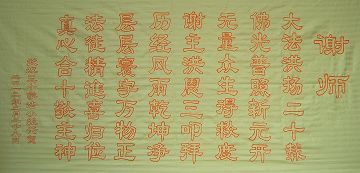 谢师
大法洪扬二十载
佛光普照新元开
无量众生得救度
谢主洪恩三叩拜
历经风雨乾坤净
层层寰宇万物正
法徒精进喜归位
真心合十敬主神